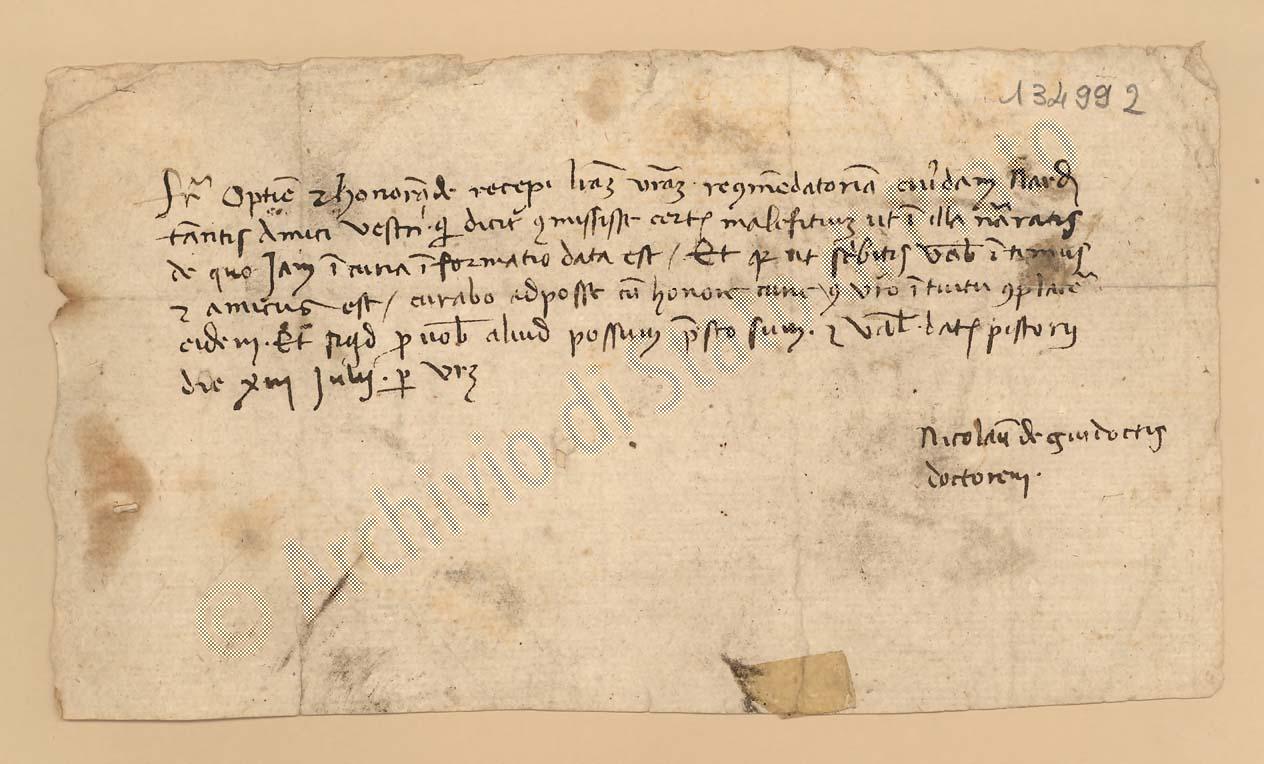 134992
Fr̄ Optīe ⁊ honorāde recepi l̄ram vr̄am recom̄endatoriam cuiusdam Nardi
Amici vestri qui dicit̄ cōmississe certū malefitium ut ī illa nārratis
de quo Jam ī curia īformatio data est / Et quia ut scribitis vob̄ ītimus
⁊ amicus est / curabo ad posse cū honore curie ⁊ vr̄o ītuitu cōplacē
eidem · Et siquid pro vob̄ aliud possum p̄sto sum · ⁊ val̄ · dat̄ pistorii
die xiii Julii · per vr̄m
Nicolaū de guidoctis
doctorem ·
© Archivio di Stato di Prato